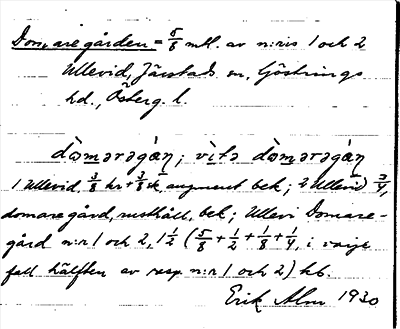 Domaregården = 5/8 mtl. av n:ris 1 och 2
Ullevid, Järstads sn, Göstrings
hd., Österg. l.
dòmərəgàṇ; vìtə dòmərəgàṇ
1 Ullevid, 3/8 kr + 3/8 sk, augment bek; 2 Ullevid 3/4,
domaregård, rusthåll, bek; Ullevi Domare-
gård n:r 1 och 2, 1 1/2 (5/8 + 1/2 + 1/8 + 1/4, i varje
fall hälften av resp. n:r 1 och 2) hb.
Erik Alm 1930